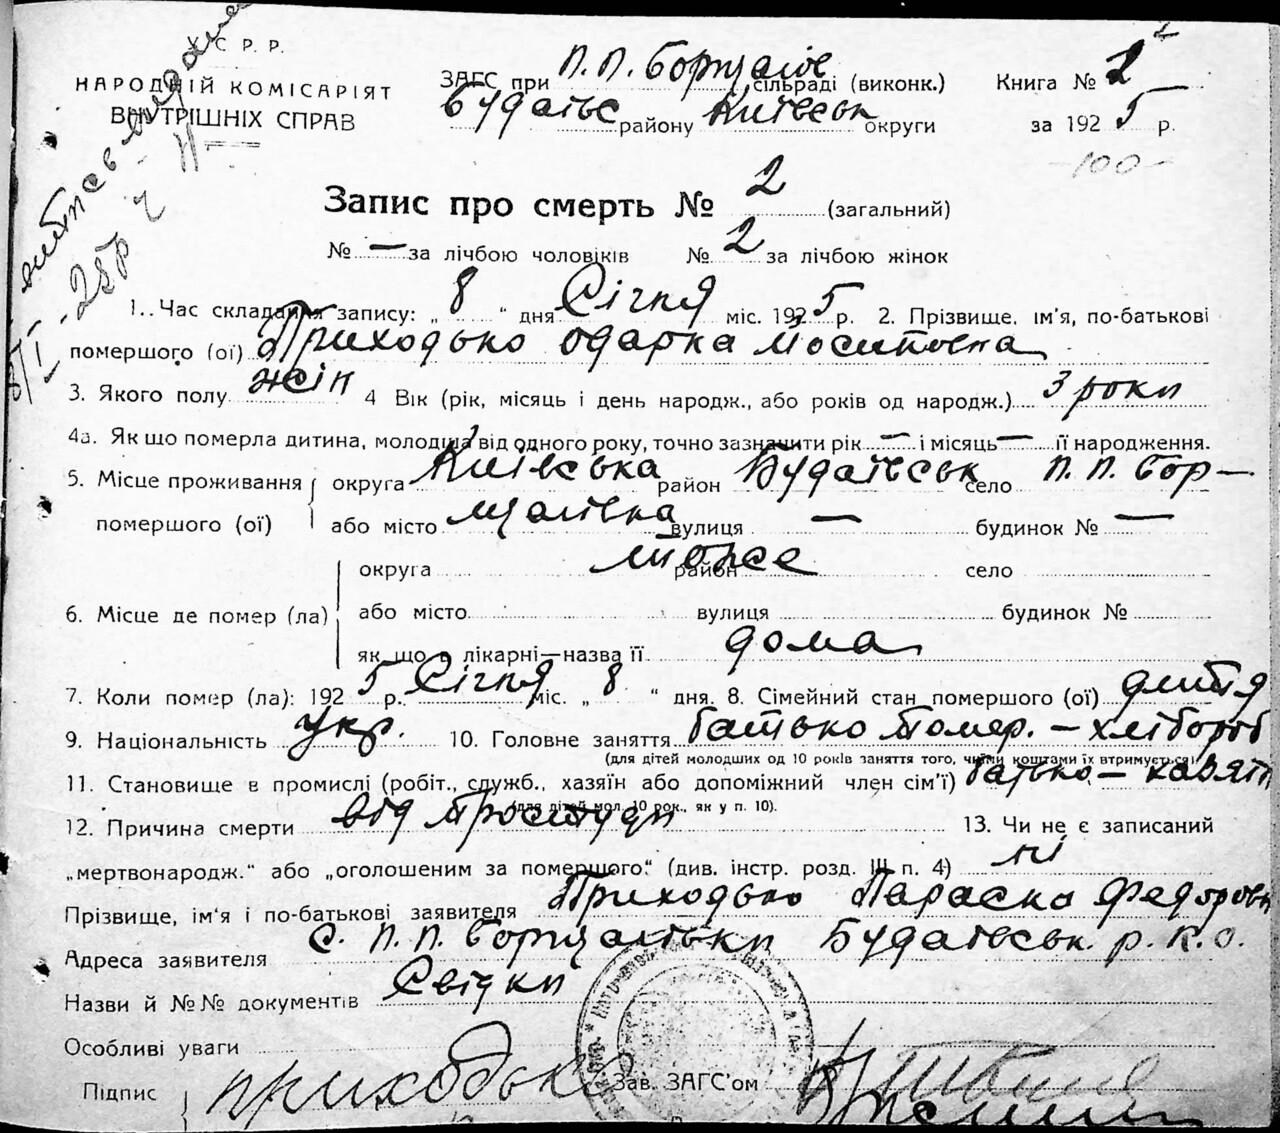 У. С. Р. Р.
НАРОДНІЙ КОМІСАРІЯТ
ВНУТРІШНІХ СПРАВ
ЗАГС при П.П. Борщагів сільраді (виконк.)
Будаївс району Київськ округи
Книга № 2
за 1925 р.
-100-
Запис про смерть № 2 (загальний)
№ — за лічбою чоловіків № 2 за лічбою жінок
1. Час складання запису: „ 8 “ дня Січня міс. 1925 р. 2. Прізвище, ім'я, по-батькові
помершого (ої) Приходько Одарка Йосиповна
3. Якого полу жін 4 Вік (рік, місяць і день народж., або років од народж.) 3 роки
4а. Якщо померла дитина, молодша від одного року, точно зазначити рік — і місяць — її народження.
5. Місце проживання помершого (ої) округа Київська район Будаївськ село П.П. Бор-
або місто щагівка вулиця — будинок № —
6. Місце де помер (ла) округа район село
також
або місто вулиця будинок №
як що в лікарні—назва її дома
7. Коли помер (ла): 1925 р. Січня міс. „ 8 “ дня. 8. Сімейний стан помершого (ої) дитя
9. Національність укр. 10. Головне заняття батько помер. - хлібороб
(для дітей молодших од 10 років заняття того, чиїми коштами їх втримується)
11. Становище в промислі (робіт., служб., хазяїн або допоміжний член сім'ї) батько - хазяїн
(для дітей мол. 10 рок., як у п. 10).
12. Причина смерти від простуди 13. Чи не є записаний
„мертвонародж.“ або „оголошеним за помершого“ (див. інстр. розд. III п. 4) ні
Прізвище, ім'я і по-батькові заявителя Приходько Параска Федоровн
Адреса заявителя с. П.П. Борщагівки Будаївськ. р. К.О.
Назви й №№ документів Свідки
Особливі уваги
Підпис Приходько Зав. ЗАГС'ом